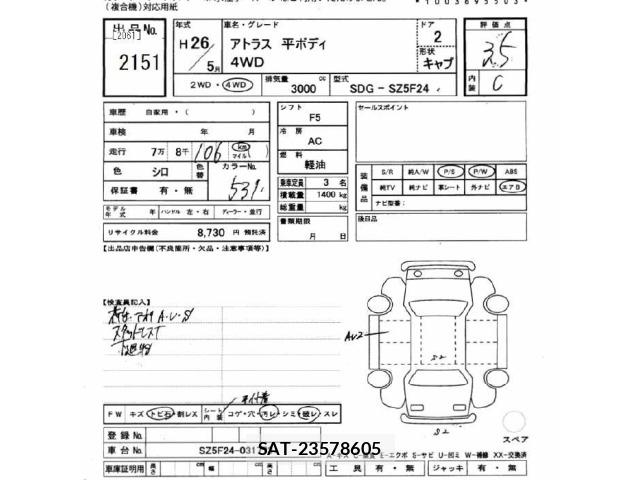 (複合機)対応用紙
出品No.
[2061]
2151
年式
H26/5月
車名・グレード
アトラス 平ボディ
4WD
ドア
2
形状
キャブ
評価点
3.5
内装
C
2WD・4WD
排気量
3000 cc
型式
SDG - SZ5F24
車歴 自家用・( )
車検 年 月
走行 7万 8千 106 km マイル
色 シロ 色替 カラーNo. 531
保証書 有・無
モデル年式 年 ハンドル 左・右 ディーラー・並行
リサイクル料金 8,730 円 預託済
シフト
F5
冷房
AC
燃料
軽油
乗車定員 3 名
積載量 1400 kg
総重量 kg
書類期限
月 日
セールスポイント
装備品
S/R 純A/W P/S P/W ABS
純TV 純ナビ 革シート 外ナビ エアB
ナビ型番:
後日品
【出品店申告欄(不良箇所・欠品・注意事項等)】
【検査員記入】
AU2
S2
S2
スペア
FW キズ・トビ石・割レス
シート内装 コゲ・穴・汚レ・シミ・破レ・スレ
登録No.
車台No. SZ5F24-031
SAT-23578605
E-エクボ S-サビ U-凹ミ W-補修 XX-交換済
車庫証明用 長さ cm 幅 cm 高さ cm
工具 有・無 ジャッキ 有・無